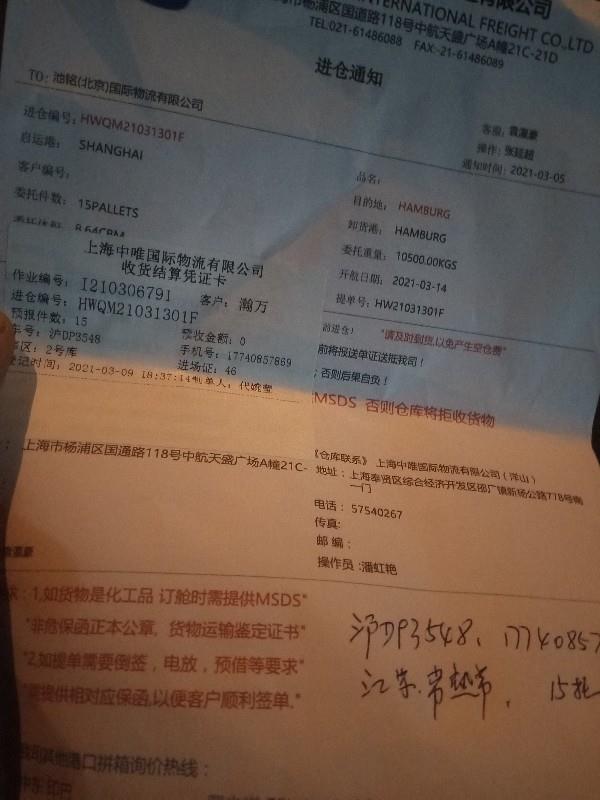 INTERNATIONAL FREIGHT CO.,LTD
海市杨浦区国通路118号中航天盛广场A幢21C-21D
TEL:021-61486088 FAX:-21-61486089
进仓通知
TO: 池铭(北京)国际物流有限公司
客服:
操作: 张廷超
通知时间: 2021-03-05
进仓编号: HWQM21031301F
启运港: SHANGHAI
客户编号:
委托件数: 15PALLETS
8.64CBM
品名:
目的地: HAMBURG
卸货港: HAMBURG
委托重量: 10500.00KGS
开航日期: 2021-03-14
提单号: HW21031301F
上海中唯国际物流有限公司
收货结算凭证卡
作业编号: I210306791 客户: 瀚万
进仓编号: HWQM21031301F
预报件数: 15 预收金额: 0
车号: 沪DP3548 手机号: 17740857869
库区: 2号库 进场证: 46
登记时间: 2021-03-09 18:37:14 制单人: 代婉莹
前进仓! "请及时到货,以免产生空仓费"
前将报送单证送抵我司!
; 否则后果自负!
MSDS 否则仓库将拒收货物
: 上海市杨浦区国通路118号中航天盛广场A幢21C-
《仓库联系》 上海中唯国际物流有限公司(洋山)
地址: 上海奉贤区综合经济开发区邵厂镇新杨公路778号南
一门
电话: 57540267
传真:
邮编:
操作员:潘虹艳
求: 1,如货物是化工品 订舱时需提供MSDS"
"非危保函正本公章, 货物运输鉴定证书"
"2,如提单需要倒签,电放,预借等要求"
"需提供相对应保函,以便客户顺利签单."
沪DP3548、17740857
江苏.常熟市, 15托
我司其他港口拼箱询价热线:
中东 印巴